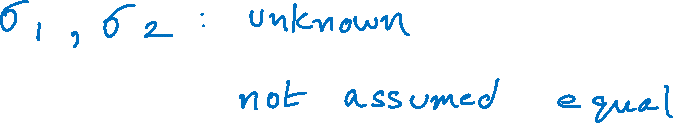 σ1, σ2 : unknown
not assumed equal